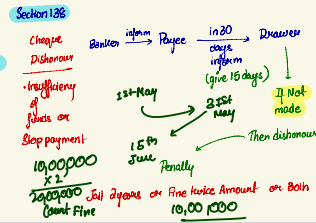 Section 138
Cheque
Dishonour
Banker inform Payee in 30 days inform Drawer
(give 15 days)
If Not
made
• Insufficiency
of
funds or
Stop payment
1st May
31st
May
15th
June
Then dishonour
Penalty
10,00,000
× 2
20,00,000
Court Fine
Jail 2 years or Fine twice Amount or Both
10,00,000